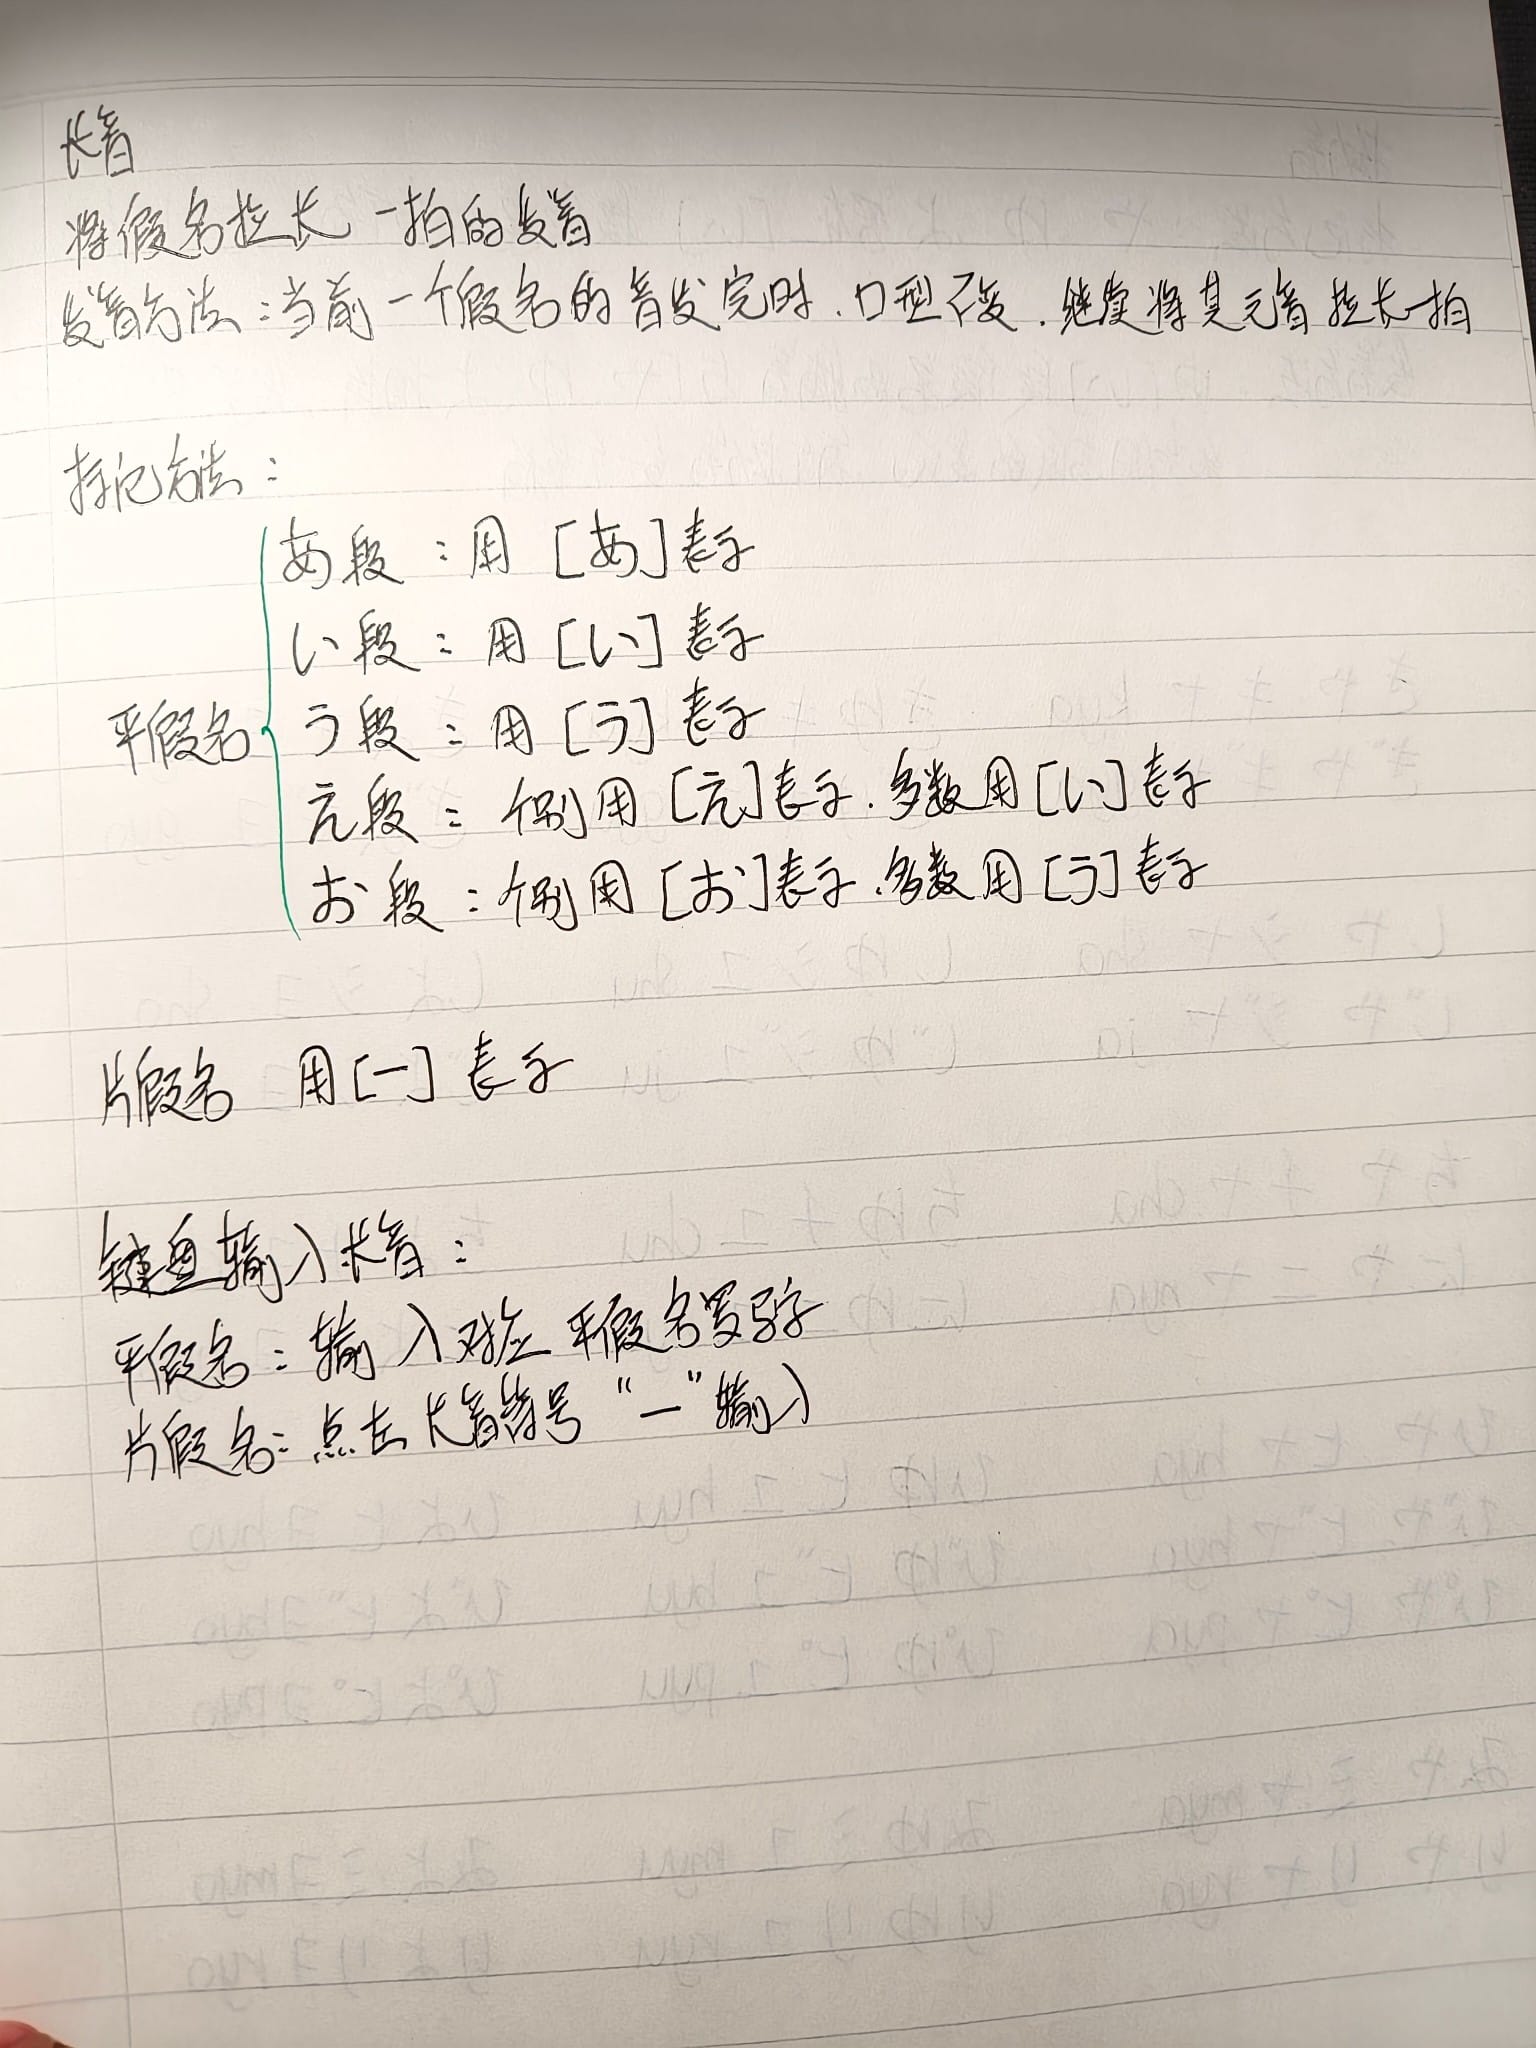 长音
将假名拉长一拍的发音
发音方法：当前一个假名的音发完时、口型不变、继续将其元音拉长一拍
标记方法：
あ段：用［あ］表示
い段：用［い］表示
平假名 う段：用［う］表示
え段：个别用［え］表示、多数用［い］表示
お段：个别用［お］表示、多数用［う］表示
片假名 用［ー］表示
键盘输入长音：
平假名：输入对应平假名罗马字
片假名：点击长音符号“ー”输入